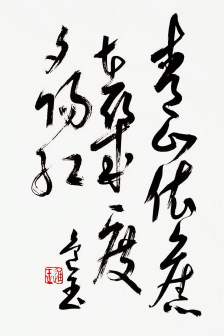 青山依舊
在幾度
夕陽紅